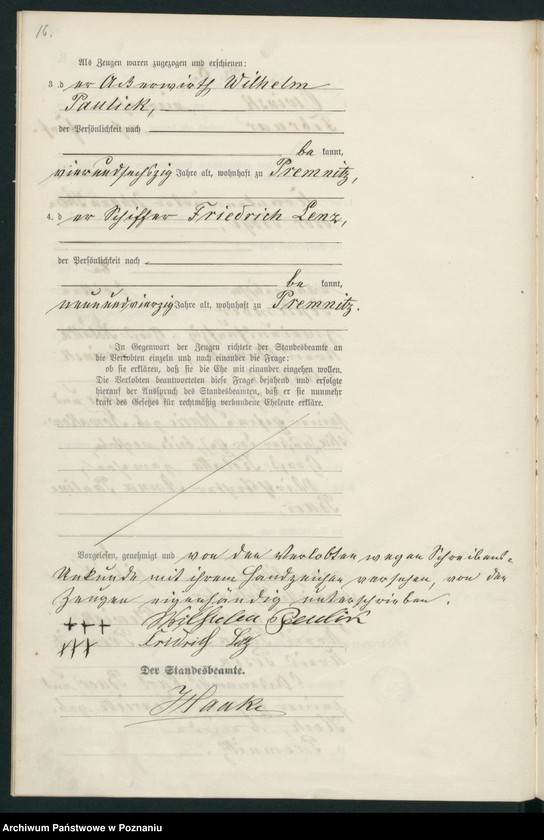 16.
Als Zeugen waren zugezogen und erschienen:
3. d er Ackerwirth Wilhelm
Paulick,
der Persönlichkeit nach
be kannt,
vierundsechszig Jahre alt, wohnhaft zu Premnitz,
4. d er Schiffer Friedrich Lenz,
der Persönlichkeit nach
be kannt,
neunundvierzig Jahre alt, wohnhaft zu Premnitz.
In Gegenwart der Zeugen richtete der Standesbeamte an
die Verlobten einzeln und nach einander die Frage:
ob sie erklären, daß sie die Ehe mit einander eingehen wollen.
Die Verlobten beantworteten diese Frage bejahend und erfolgte
hierauf der Ausspruch des Standesbeamten, daß er sie nunmehr
kraft des Gesetzes für rechtmäßig verbundene Eheleute erkläre.
Vorgelesen, genehmigt und von den Verlobten wegen Schreibens-
Unkunde mit ihrem Handzeichen versehen, von den
Zeugen eigenhändig unterschrieben.
+++ Wilhelm
+++ Fridrich
Der Standesbeamte.
Haake
Archiwum Państwowe w Poznaniu